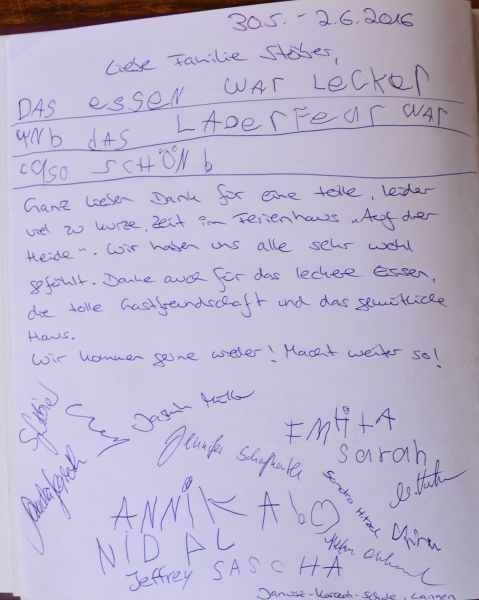 30.5. - 2.6.2016
Liebe Familie Stöber,
DAS essen WAR LeCKer
UNb dAS LAGerFeur WAR
SCHÖN b
Ganz lieben Dank für eine tolle, leider
viel zu kurze, Zeit im Ferienhaus „Auf der
Heide“. Wir haben uns alle sehr wohl
gefühlt. Danke auch für das leckere Essen,
die tolle Gastfreundschaft und das gemütliche
Haus.
Wir kommen gerne wieder! Macht weiter so!
Jasmin Müller
Jennifer
EMiLA
Sarah
Sandra
ANNIK
NIDAL
Jeffrey SASCHA
Janusz-Korczak-Schule, Langen